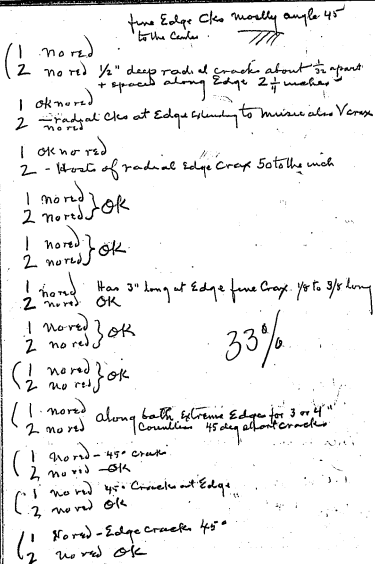 fine Edge Cks mostly angle 45
to the Center
1 no red
2 no red 1/2" deep radial cracks about 1/32 apart
+ spaced along Edge 2 1/4 inches
1 OK no red
2 - radial Cks at Edge Extending to music also V crax
no red
1 OK no red
2 - Hosts of radial Edge Crax 50 to the inch
1 no red
2 no red } OK
1 no red
2 no red } OK
1 no red Has 3" long at Edge fine Crax. 1/8 to 3/8 long
2 no red OK
1 No red
2 no red } OK
33%
1 no red
2 no red } OK
1 no red along both Extreme Edges for 3 or 4"
2 no red Countless 45 deg short cracks
1 No red - 45° crax
2 no red - OK
1 no red 45° Cracks at Edge
2 no red OK
1 No red - Edge cracks 45°
2 no red OK